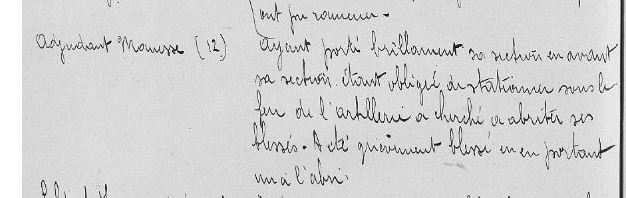 ont pu ramener -
Adjudant Manesse (12) Ayant porté brillament sa section en avant
sa section étant obligée de stationner sous le
feu de l'artillerie a cherché a abriter ses
blessés. A été grièvement blessé en en portant
un à l'abri.